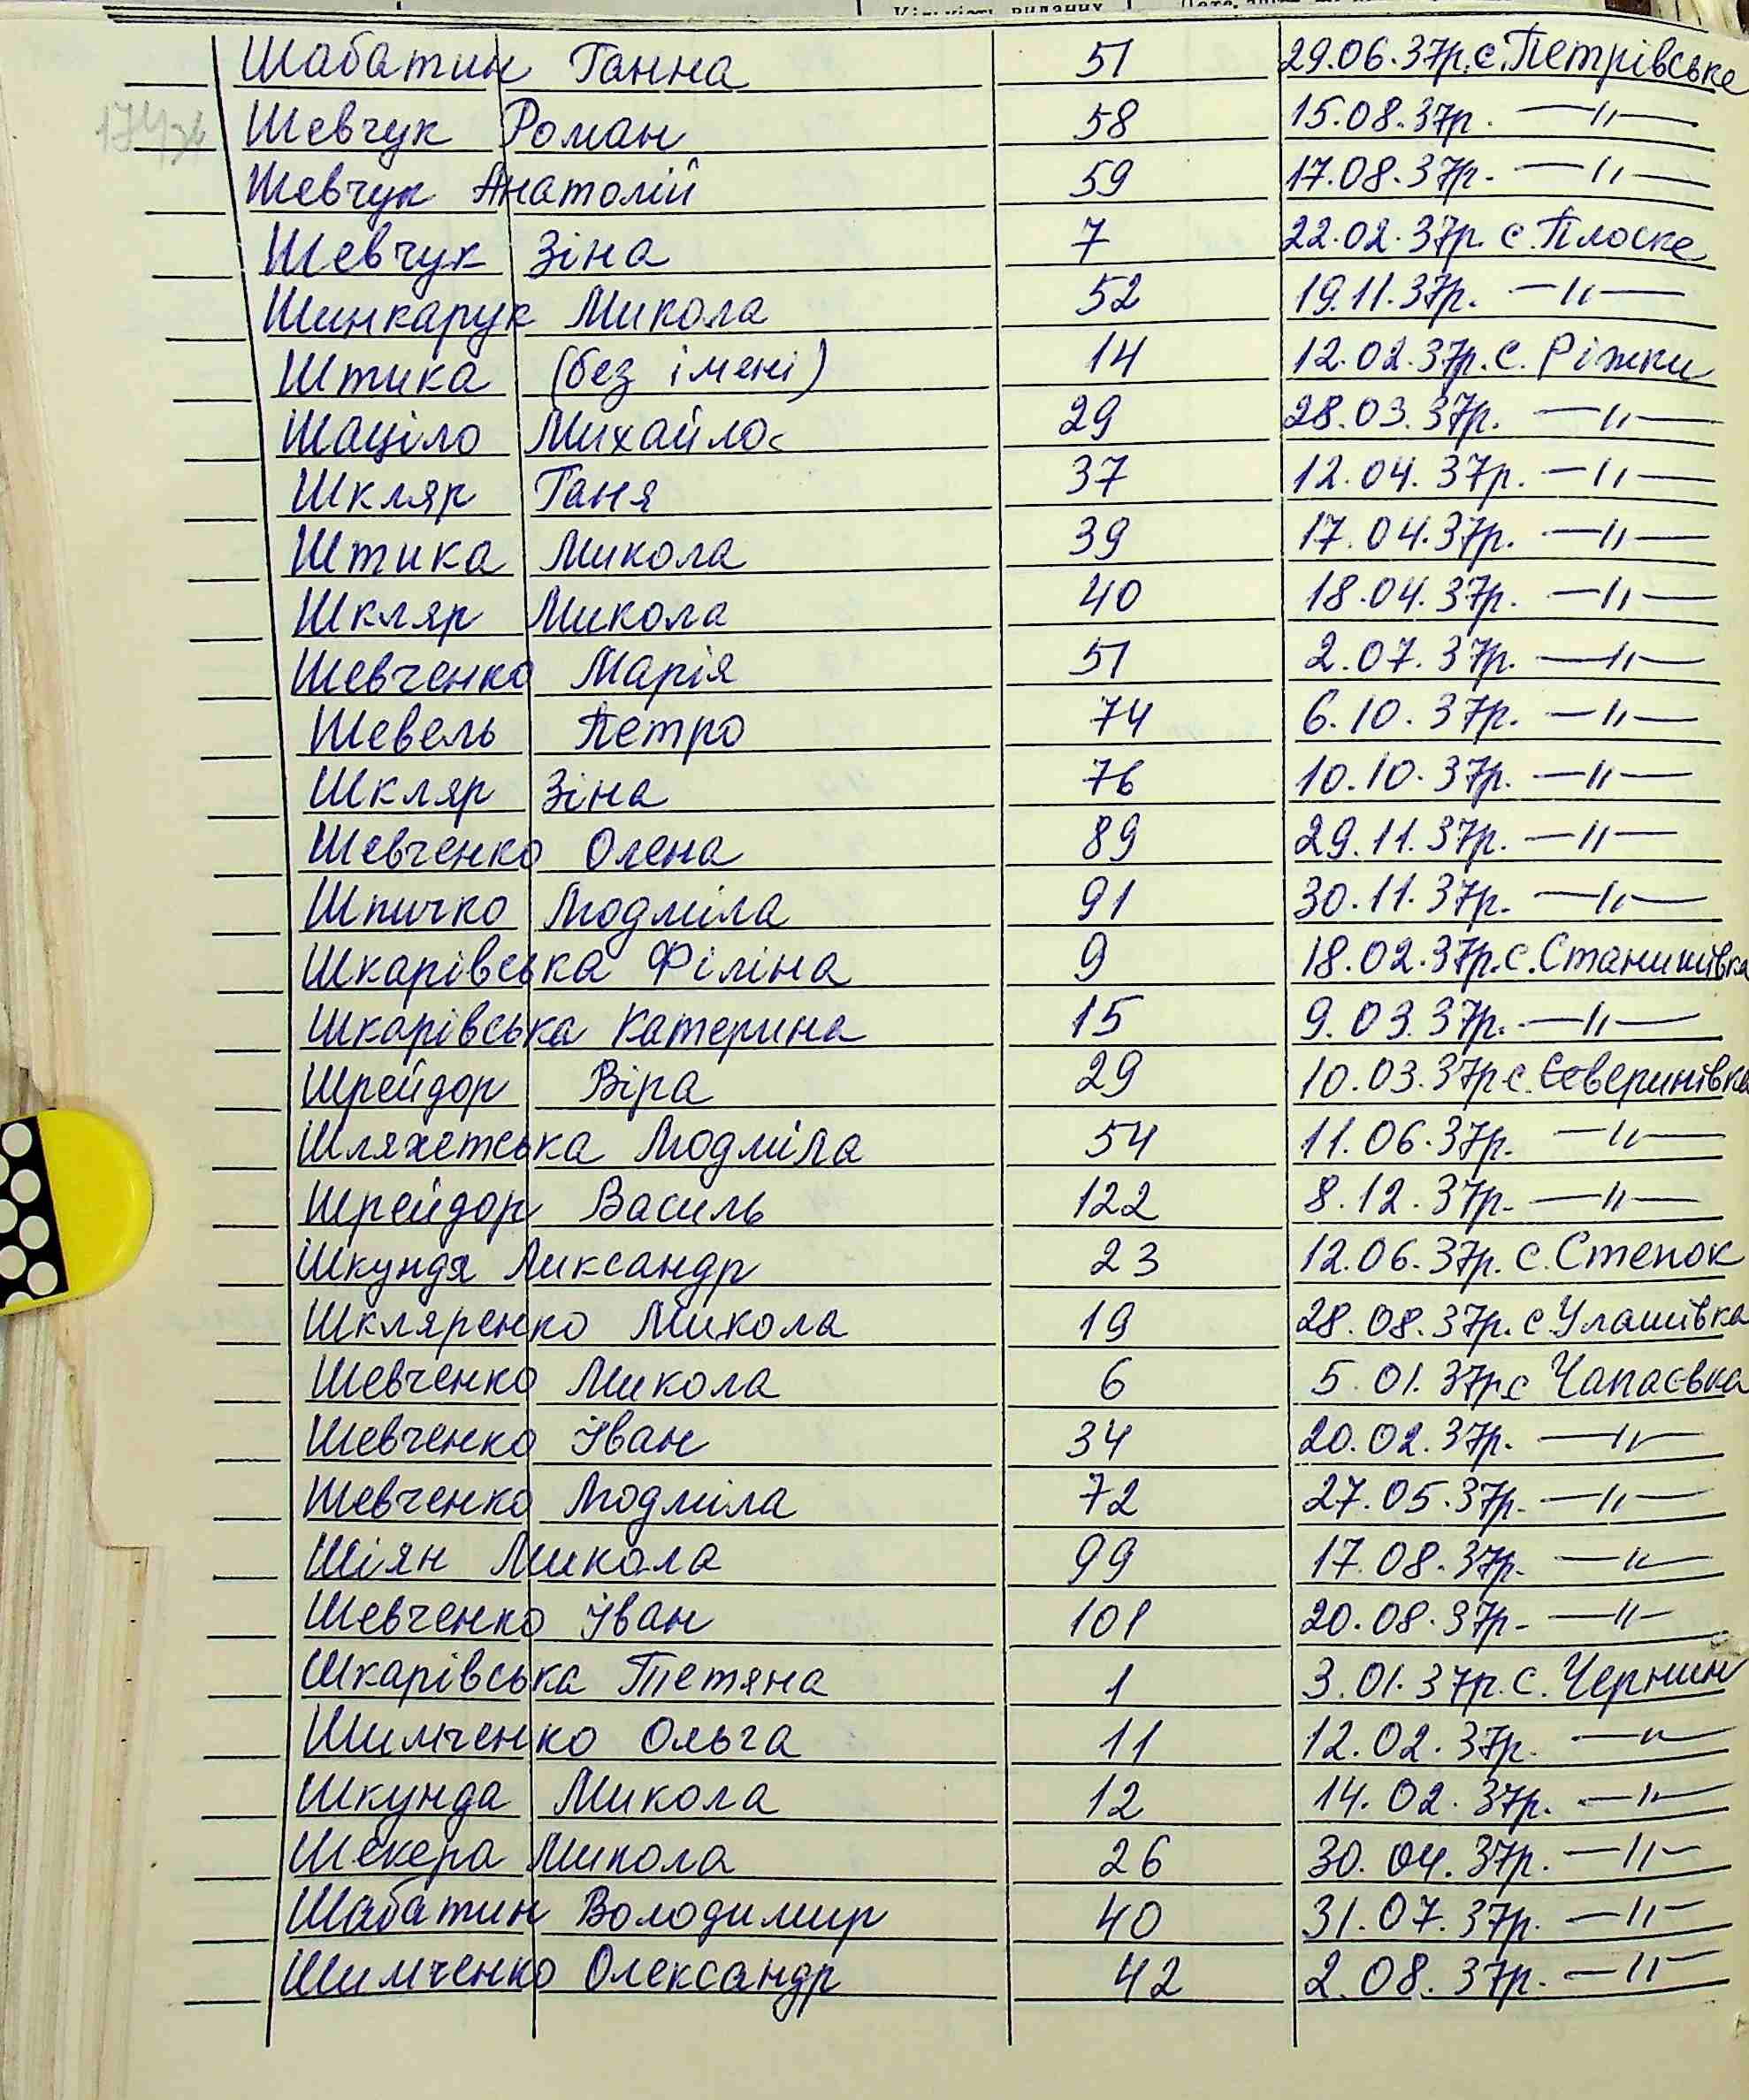 Кількість виданих
Шабатин Ганна 51 29.06.37р. с. Петрівське
Шевчук Роман 58 15.08.37р. —"—
Шевчук Анатолій 59 17.08.37р. —"—
Шевчук Зіна 7 22.02.37р. с. Плоске
Шинкарук Микола 52 19.11.37р. —"—
Штика (без імені) 14 12.02.37р. с. Ріжки
Шаціло Михайло 29 28.03.37р. —"—
Шкляр Ганя 37 12.04.37р. —"—
Штика Микола 39 17.04.37р. —"—
Шкляр Микола 40 18.04.37р. —"—
Шевченко Марія 51 2.07.37р. —"—
Шевель Петро 74 6.10.37р. —"—
Шкляр Зіна 76 10.10.37р. —"—
Шевченко Олена 89 29.11.37р. —"—
Шпичко Людміла 91 30.11.37р. —"—
Шкарівська Філіна 9 18.02.37р. с. Станишівка
Шкарівська Катерина 15 9.03.37р. —"—
Шрейдор Віра 29 10.03.37р с. Северинівка
Шляхетська Людміла 54 11.06.37р. —"—
Шрейдор Василь 122 8.12.37р. —"—
Шкундя Аиксандр 23 12.06.37р. с. Степок
Шкляренко Микола 19 28.08.37р. с Улашівка
Шевченко Микола 6 5.01.37р с Чапаєвка
Шевченко Іван 34 20.02.37р. —"—
Шевченко Людміла 72 27.05.37р. —"—
Шіян Микола 99 17.08.37р. —"—
Шевченко Іван 101 20.08.37р. —"—
Шкарівська Тетяна 1 3.01.37р. с. Чернин
Шимченко Ольга 11 12.02.37р. —"—
Шкунда Микола 12 14.02.37р. —"—
Шекера Микола 26 30.04.37р. —"—
Шабатин Володимир 40 31.07.37р. —"—
Шимченко Олександр 42 2.08.37р. —"—